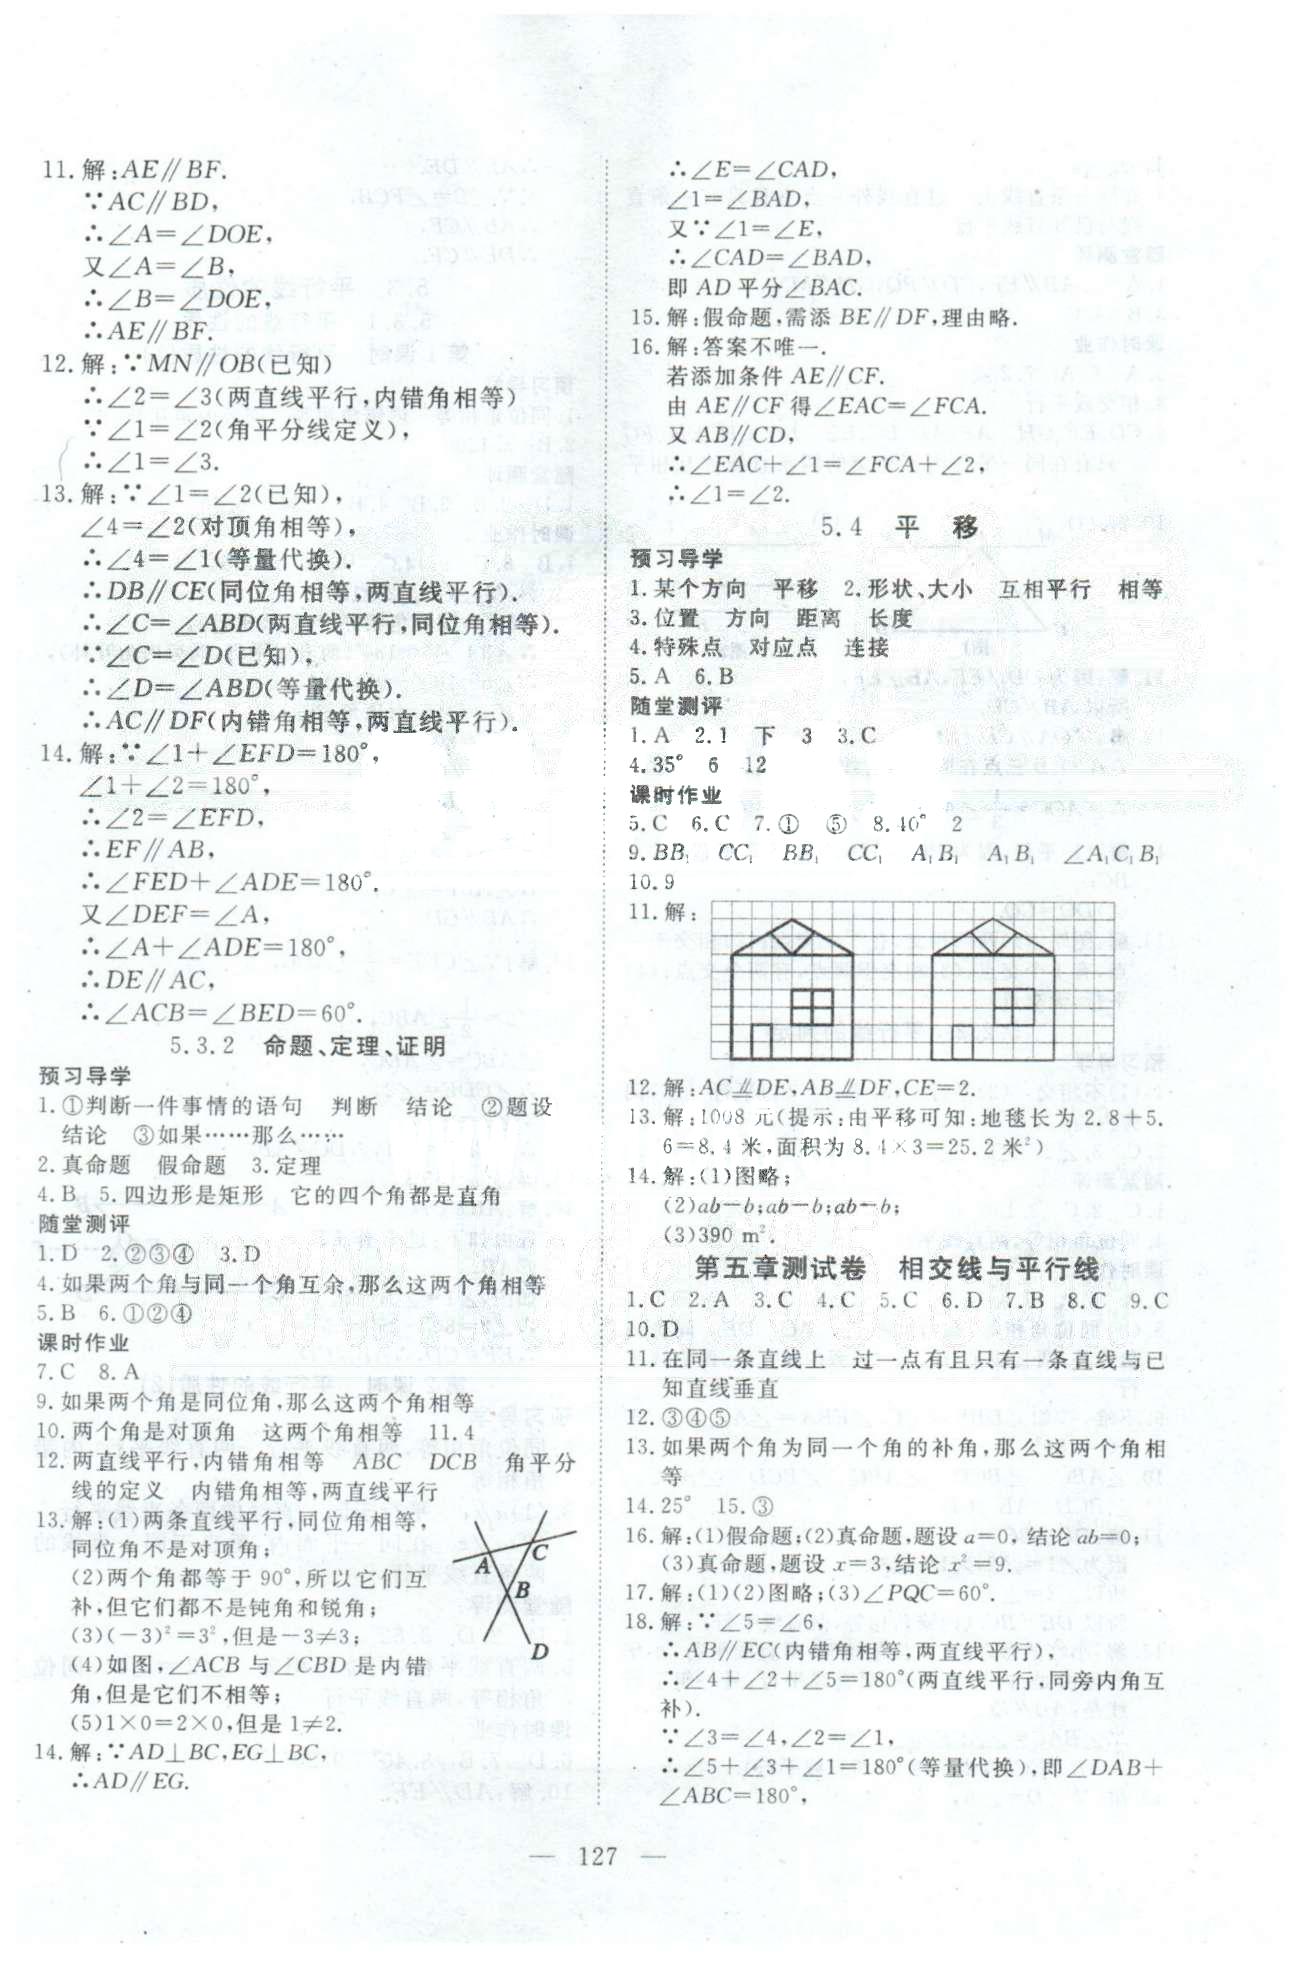 11.解:AE∥BF.
∵AC∥BD,
∴∠A=∠DOE,
又∠A=∠B,
∴∠B=∠DOE,
∴AE∥BF.
12.解:∵MN∥OB(已知)
∴∠2=∠3(两直线平行,内错角相等)
∵∠1=∠2(角平分线定义),
∴∠1=∠3.
13.解:∵∠1=∠2(已知),
∠4=∠2(对顶角相等),
∴∠4=∠1(等量代换).
∴DB∥CE(同位角相等,两直线平行).
∴∠C=∠ABD(两直线平行,同位角相等).
∵∠C=∠D(已知),
∴∠D=∠ABD(等量代换).
∴AC∥DF(内错角相等,两直线平行).
14.解:∵∠1+∠EFD=180°,
∠1+∠2=180°,
∴∠2=∠EFD,
∴EF∥AB,
∴∠FED+∠ADE=180°.
又∠DEF=∠A,
∴∠A+∠ADE=180°,
∴DE∥AC,
∴∠ACB=∠BED=60°.
5.3.2 命题、定理、证明
预习导学
1.①判断一件事情的语句 判断 结论 ②题设
结论 ③如果……那么……
2.真命题 假命题 3.定理
4.B 5.四边形是矩形 它的四个角都是直角
随堂测评
1.D 2.②③④ 3.D
4.如果两个角与同一个角互余,那么这两个角相等
5.B 6.①②④
课时作业
7.C 8.A
9.如果两个角是同位角,那么这两个角相等
10.两个角是对顶角 这两个角相等 11.4
12.两直线平行,内错角相等 ABC DCB 角平分
线的定义 内错角相等,两直线平行
13.解:(1)两条直线平行,同位角相等,
同位角不是对顶角;
(2)两个角都等于90°,所以它们互
补,但它们都不是钝角和锐角;
(3)(-3)²=3²,但是-3≠3;
(4)如图,∠ACB与∠CBD是内错
角,但是它们不相等;
(5)1×0=2×0,但是1≠2.
A C
B
D
14.解:∵AD⊥BC,EG⊥BC,
∴AD∥EG.
∴∠E=∠CAD,
∠1=∠BAD,
又∵∠1=∠E,
∴∠CAD=∠BAD,
即AD平分∠BAC.
15.解:假命题,需添BE∥DF,理由略.
16.解:答案不唯一.
若添加条件AE∥CF.
由AE∥CF得∠EAC=∠FCA.
又AB∥CD,
∴∠EAC+∠1=∠FCA+∠2,
∴∠1=∠2.
5.4 平 移
预习导学
1.某个方向 平移 2.形状、大小 互相平行 相等
3.位置 方向 距离 长度
4.特殊点 对应点 连接
5.A 6.B
随堂测评
1.A 2.1 下 3 3.C
4.35° 6 12
课时作业
5.C 6.C 7.① ⑤ 8.40° 2
9.BB₁ CC₁ BB₁ CC₁ A₁B₁ A₁B₁ ∠A₁C₁B₁
10.9
11.解:
12.解:AC⫽DE,AB⫽DF,CE=2.
13.解:1008元(提示:由平移可知:地毯长为2.8+5.
6=8.4米,面积为8.4×3=25.2米²)
14.解:(1)图略;
(2)ab-b;ab-b;ab-b;
(3)390 m².
第五章测试卷 相交线与平行线
1.C 2.A 3.C 4.C 5.C 6.D 7.B 8.C 9.C
10.D
11.在同一条直线上 过一点有且只有一条直线与已
知直线垂直
12.③④⑤
13.如果两个角为同一个角的补角,那么这两个角相
等
14.25° 15.③
16.解:(1)假命题;(2)真命题,题设a=0,结论ab=0;
(3)真命题,题设x=3,结论x²=9.
17.解:(1)(2)图略;(3)∠PQC=60°.
18.解:∵∠5=∠6,
∴AB∥EC(内错角相等,两直线平行),
∴∠4+∠2+∠5=180°(两直线平行,同旁内角互
补).
∵∠3=∠4,∠2=∠1,
∴∠5+∠3+∠1=180°(等量代换),即∠DAB+
∠ABC=180°,
— 127 —